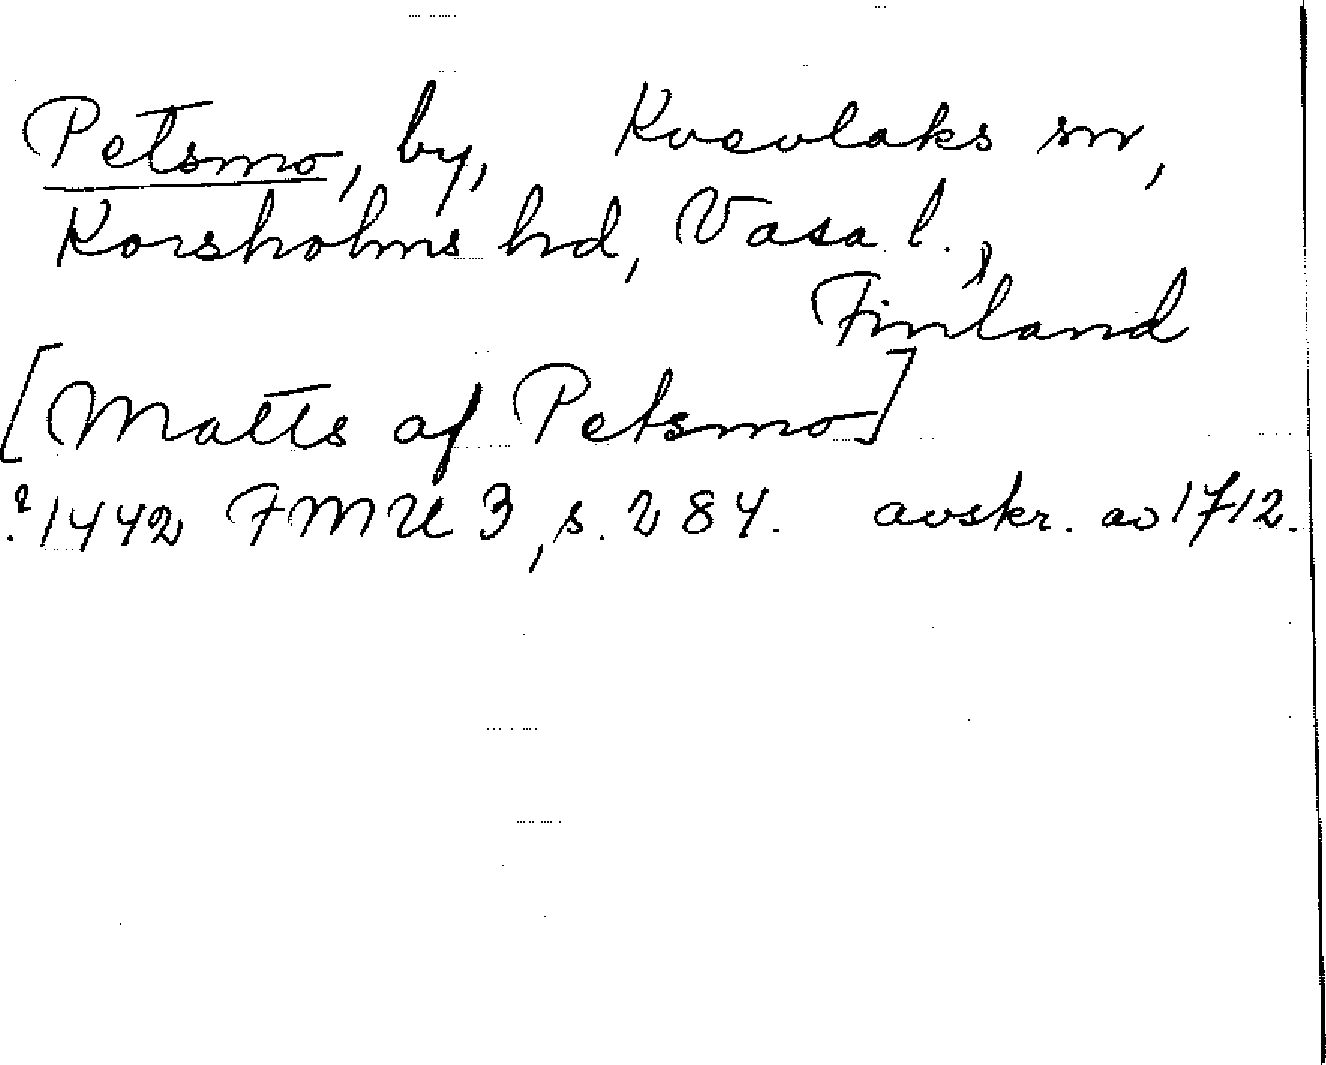 Petsmo, by, Kvevlaks sn,
Korsholms hd, Vasa l.,
Finland
[Matts af Petsmo]
? 1442 FMU 3, s. 284. avskr. av 1712.